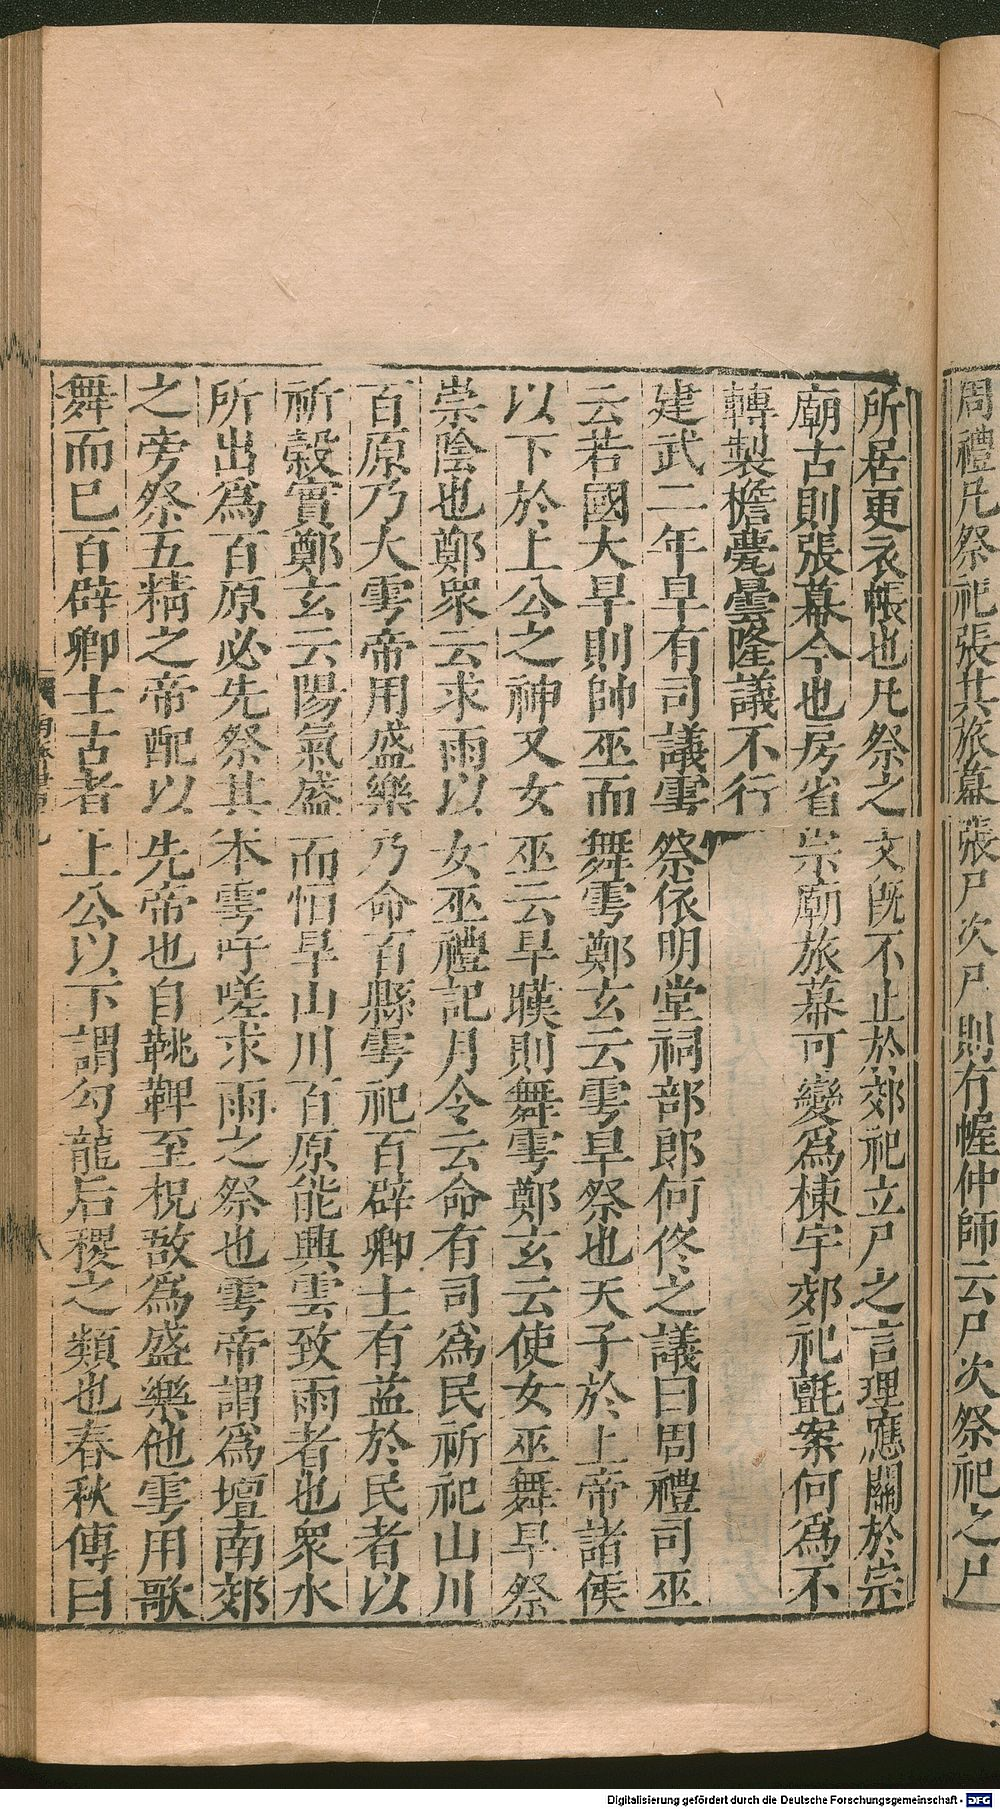 周禮凡祭祀張其旅幕張尸次尸則有幄仲師云尸次祭祀之尸
所居更衣帳也凡祭之文旣不止於郊祀立尸之言理應關於宗
廟古則張幕今也房省宗廟旅幕可變爲棟宇郊祀氈案何爲不
轉製檐甍曇隆議不行
建武二年旱有司議雩祭依明堂祠部郎何佟之議曰周禮司巫
云若國大旱則帥巫而舞雩鄭玄云雩旱祭也天子於上帝諸侯
以下於上公之神又女巫云旱暵則舞雩鄭玄云使女巫舞旱祭
崇陰也鄭衆云求雨以女巫禮記月令云命有司爲民祈祀山川
百原乃大雩帝用盛樂乃命百縣雩祀百辟卿士有益於民者以
祈穀實鄭玄云陽氣盛而怕旱山川百原能興雲致雨者也衆水
所出爲百原必先祭其本雩吁嗟求雨之祭也雩帝謂爲壇南郊
之旁祭五精之帝配以先帝也自鞉鞞至柷敔爲盛樂他雩用歌
舞而已百辟卿士古者上公以下謂勾龍后稷之類也春秋傳曰
八
Digitalisierung gefördert durch die Deutsche Forschungsgemeinschaft - DFG